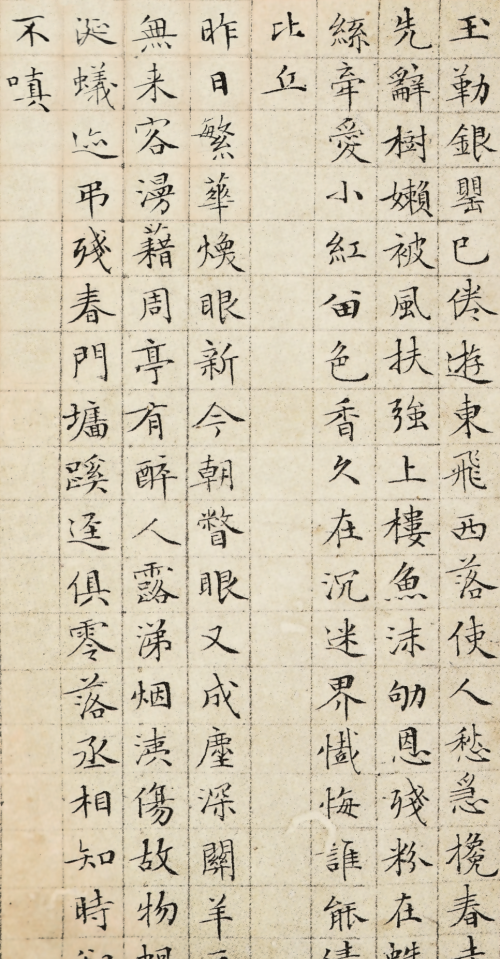 玉勒銀罌已倦遊東飛西落使人愁急攙春
先辭樹嬾被風扶強上樓魚沫劬恩殘粉在
絲牽愛小紅留色香久在沉迷界懺悔誰能
比丘
昨日繁華煥眼新今朝瞥眼又成塵深關羊
無来客漫藉周亭有醉人露涕烟洟傷故物
涎蟻迹弔殘春門墻蹊逕俱零落丞相知時
不嗔